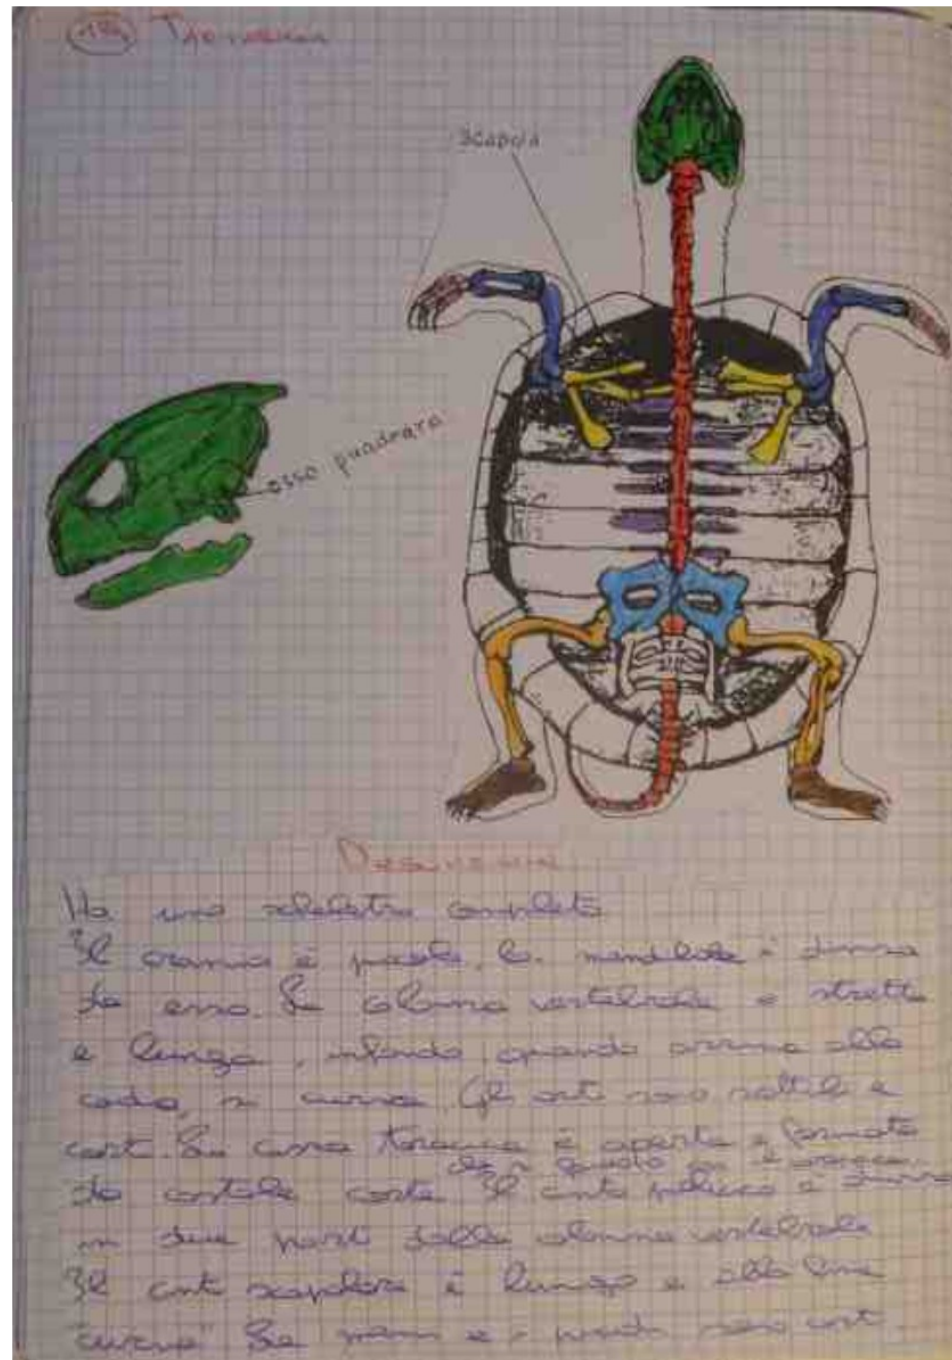 Scapola
osso quadrato
Descrizione
Ha uno scheletro completo
Il cranio è piccolo, la mandibola è divisa
da esso. La colonna vertebrale è stretta
e lunga, infondo quando arriva alla
coda, si curva. Gli arti sono sottili e
corti. La cassa toracica è aperta e formata
da costole corte Il cinto pelvico è diviso
in due parti dalla colonna vertebrale
Il cinto scapolare è lungo e alla fine
"curva" Le mani e i piedi sono corti.